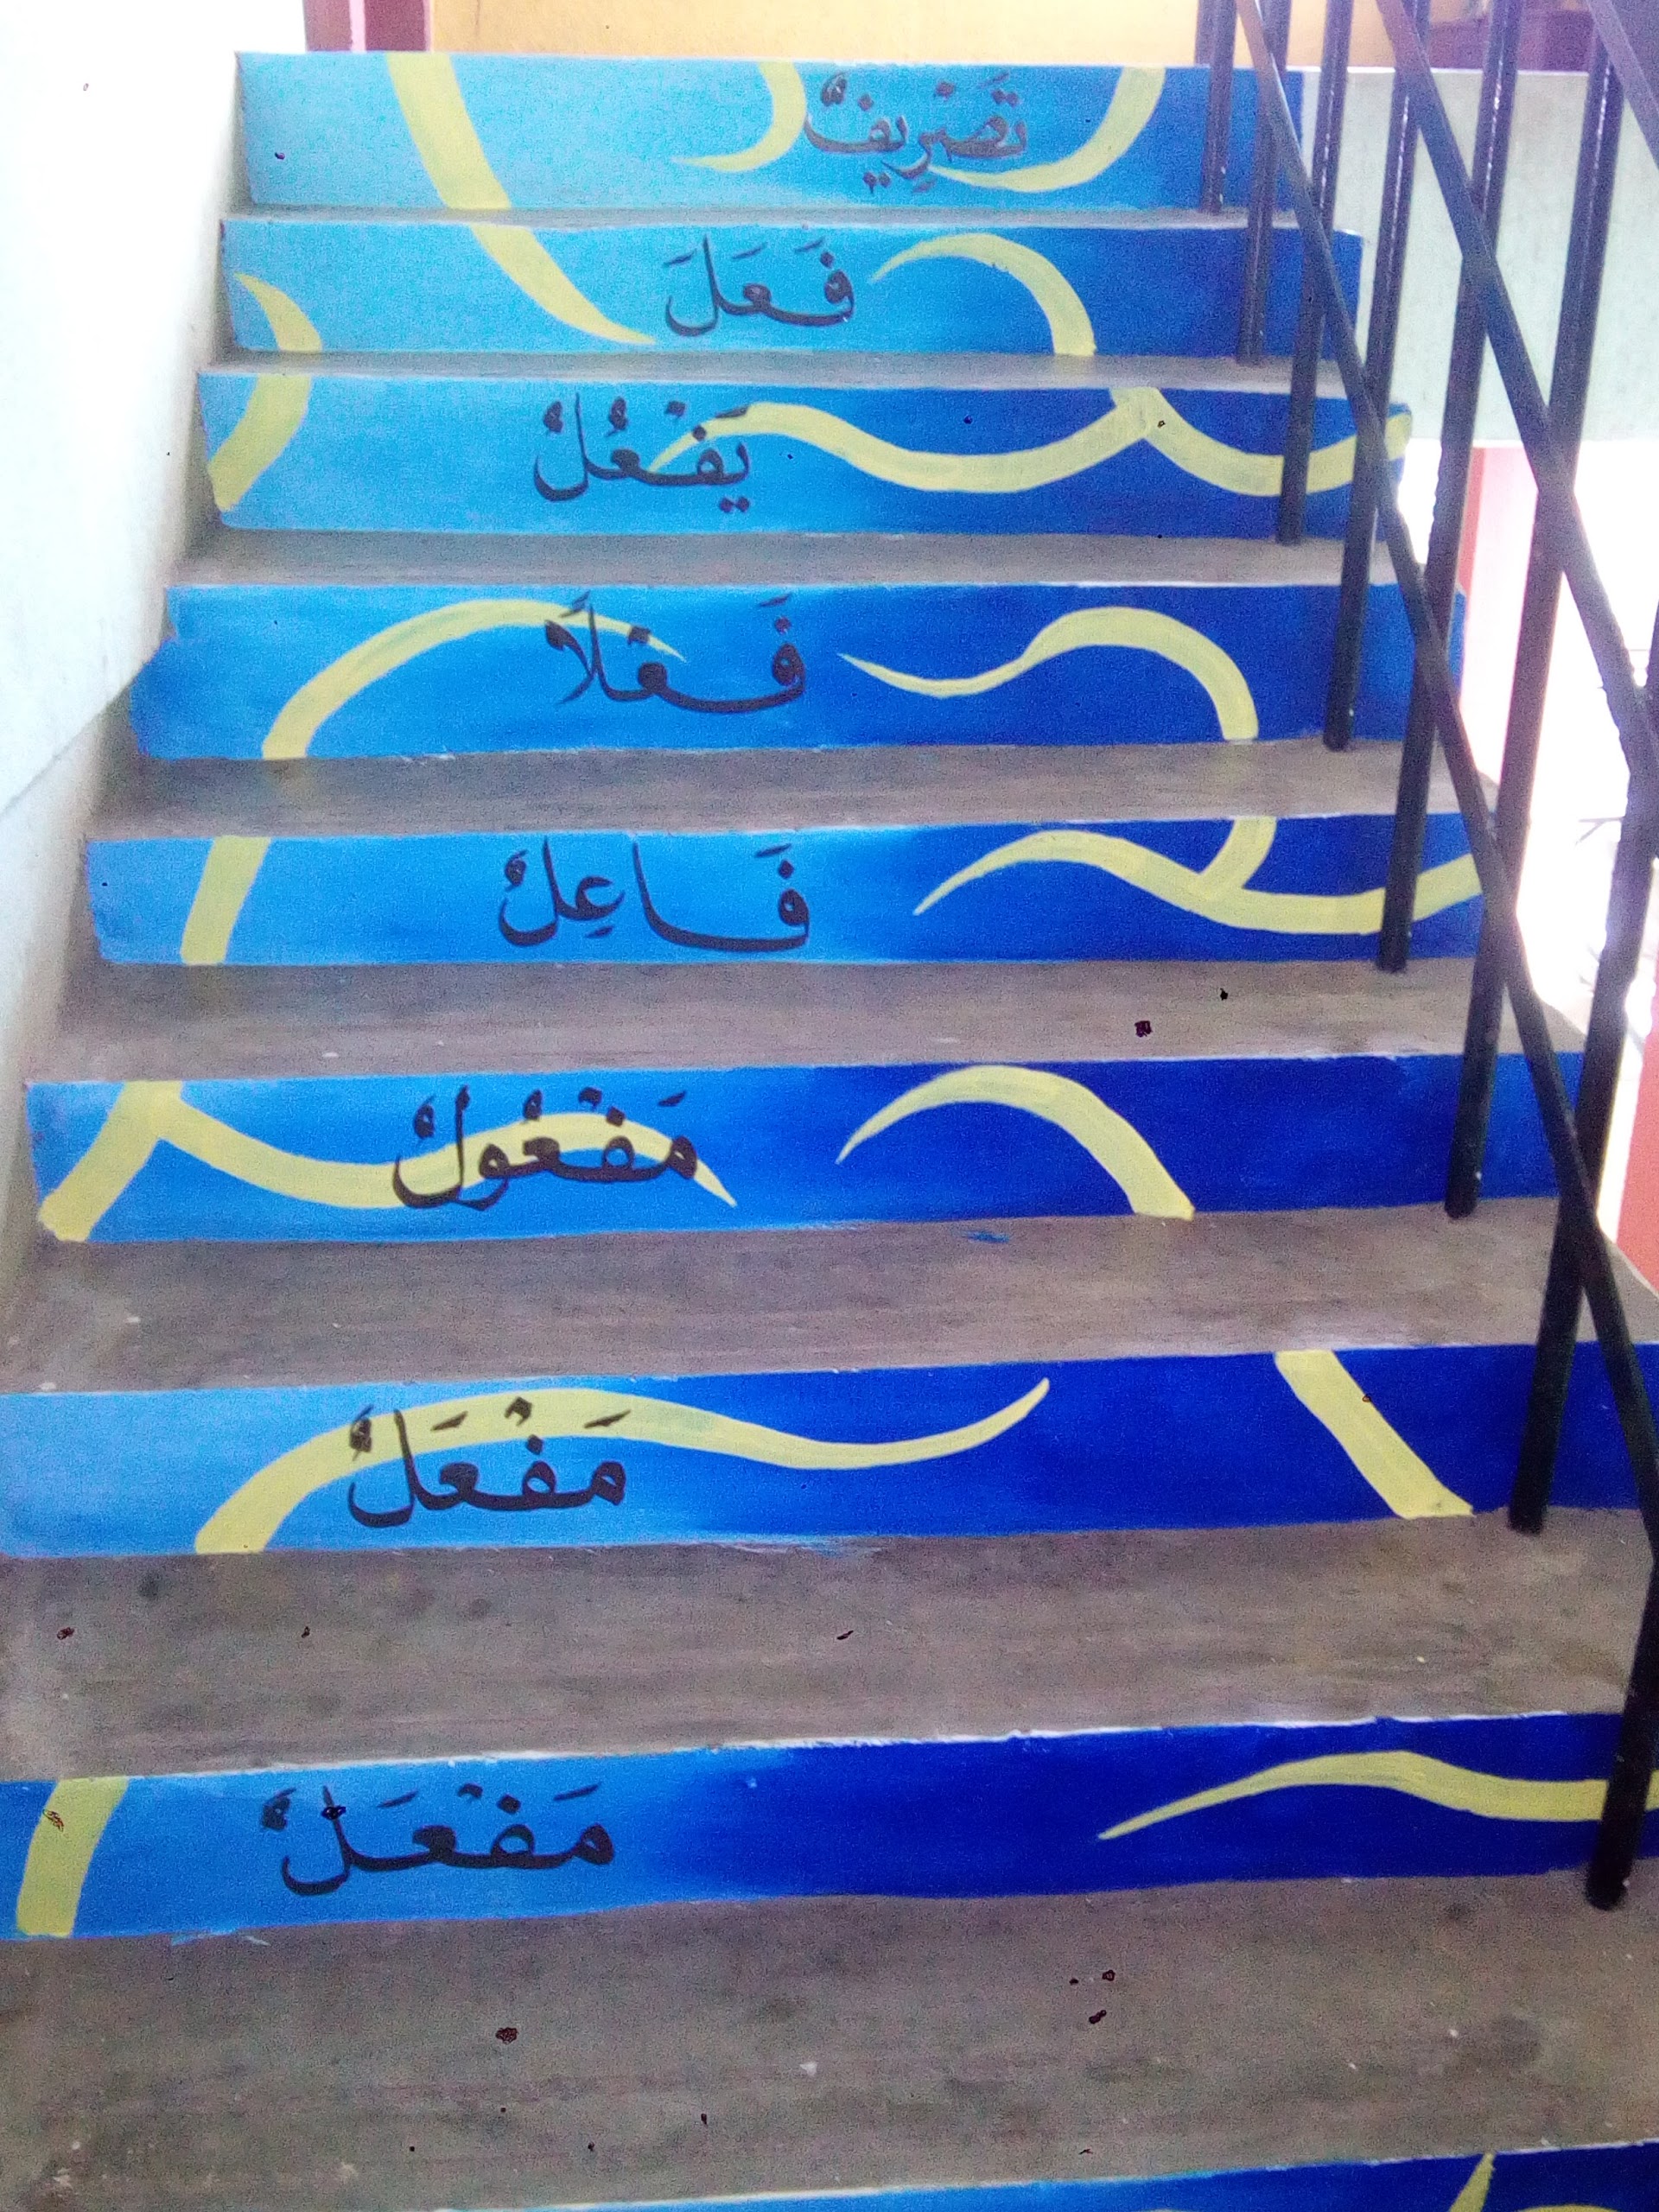 تَصْرِيفٌ
فَعَلَ
يَفْعُلُ
فَعْلاً
فَاعِلٌ
مَفْعُولٌ
مَفْعَلٌ
مَفْعَلٌ